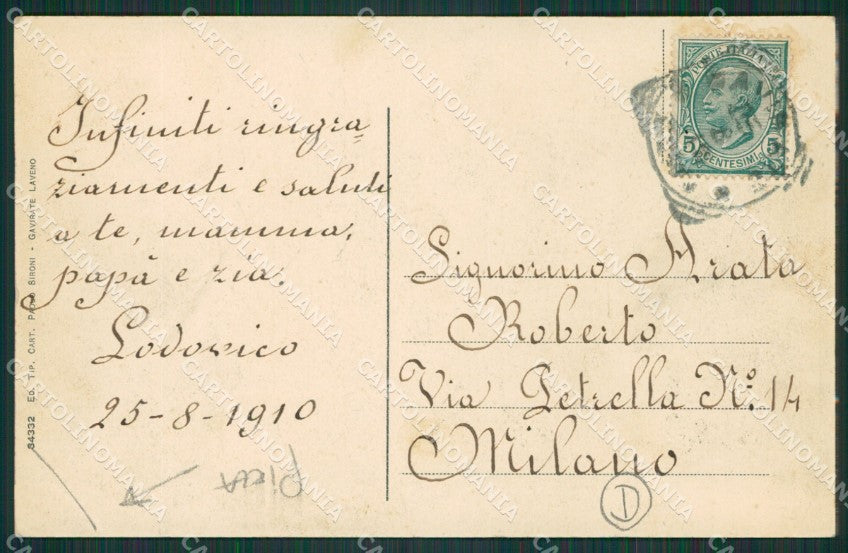 Infiniti ringra=
ziamenti e saluti
a te, mamma,
papà e zia.
Lodovico
25-8-1910
34332 ED. TIP. CART. PAOLO SIRONI - GAVIRATE LAVENO
POSTE ITALIANE
5 CENTESIMI 5
Signorino Arata
Roberto
Via Petrella N.º 14
Milano
D
CARTOLINOMANIA